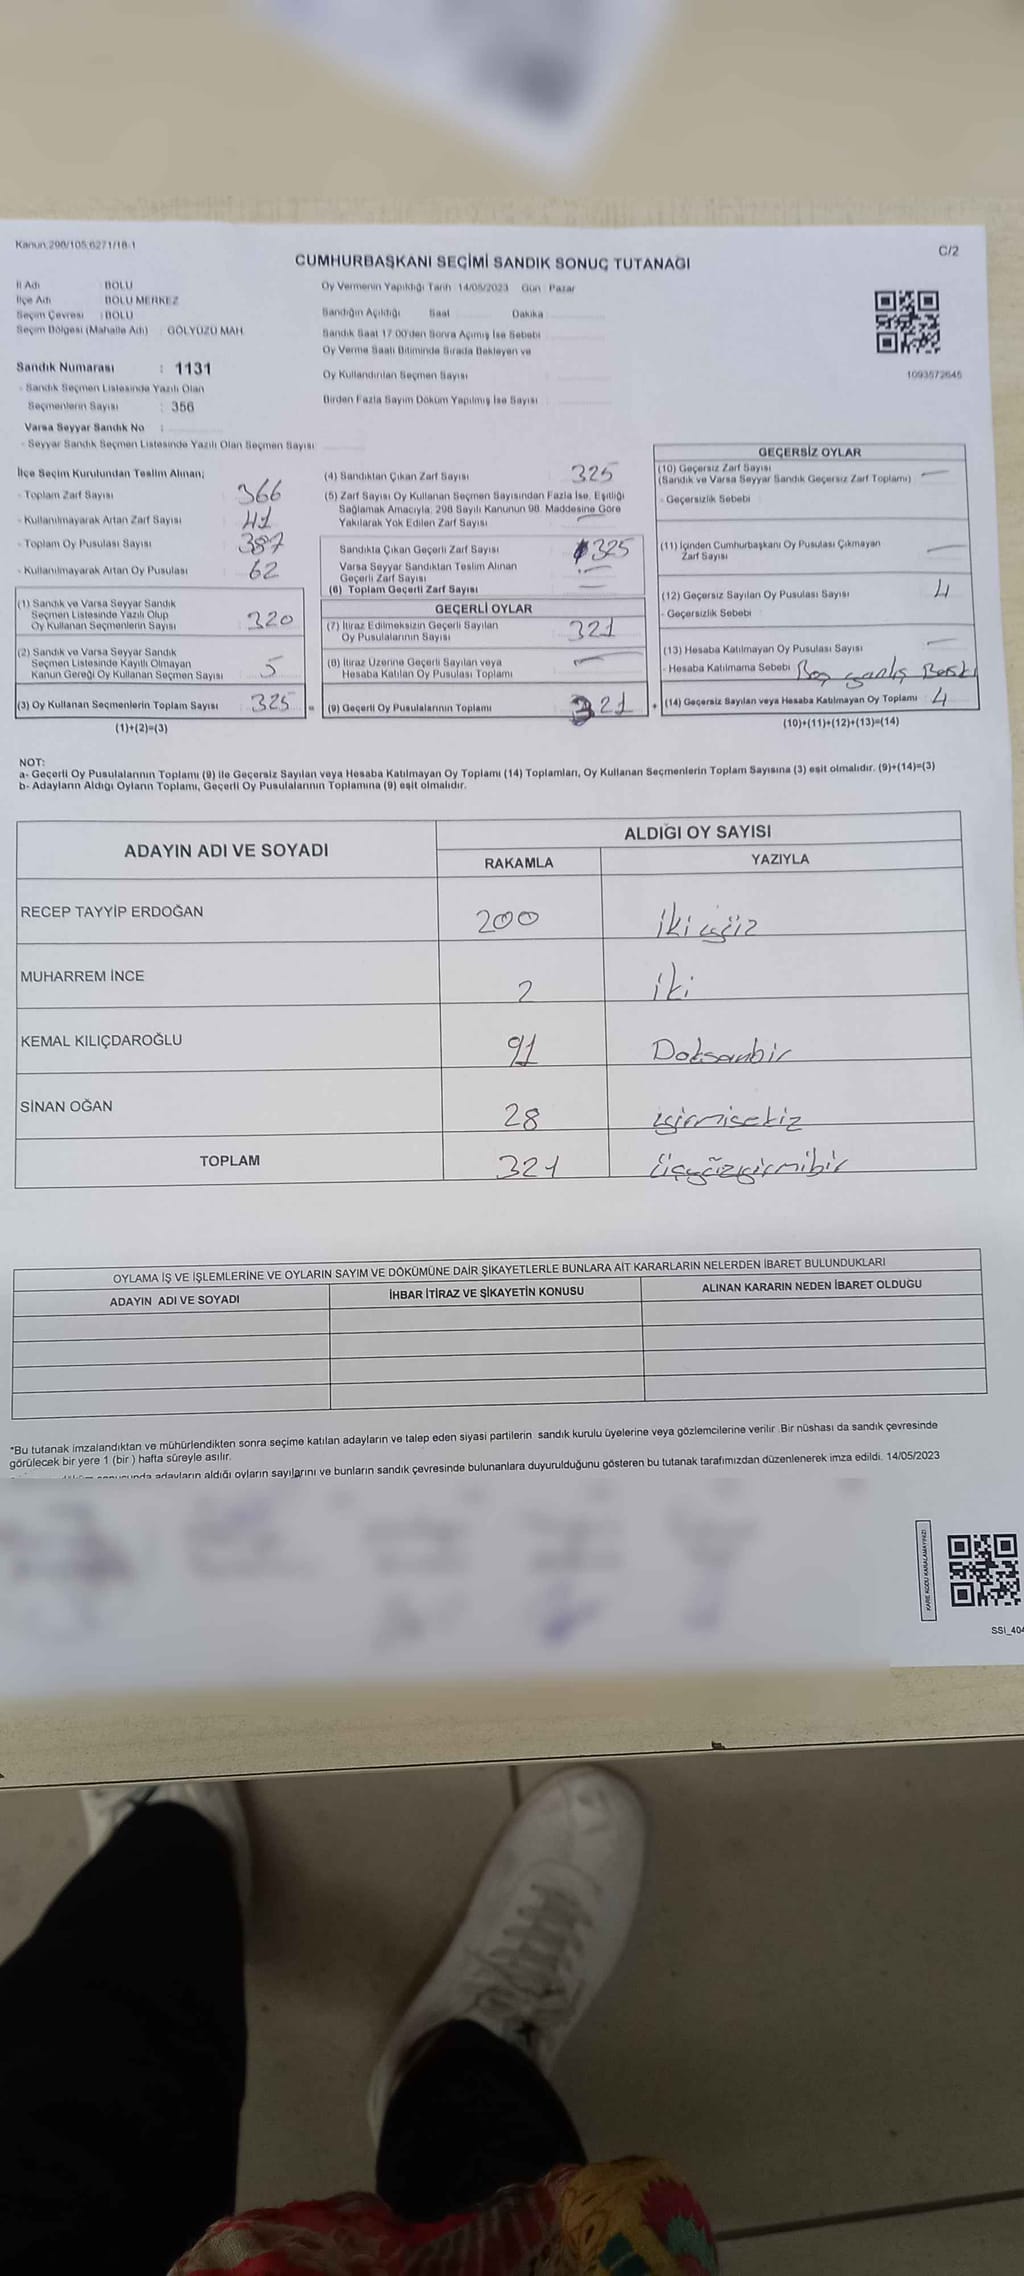 Kanun 298/105 6271/18-1
C/2
CUMHURBAŞKANI SEÇİMİ SANDIK SONUÇ TUTANAĞI
İl Adı : BOLU
İlçe Adı : BOLU MERKEZ
Seçim Çevresi : BOLU
Seçim Bölgesi (Mahalle Adı) : GÖLYÜZÜ MAH.
Oy Vermenin Yapıldığı Tarih 14/05/2023 Gün : Pazar
Sandığın Açıldığı Saat Dakika
Sandık Saat 17:00'den Sonra Açılmış İse Sebebi
Oy Verme Saati Bitiminde Sırada Bekleyen ve
Oy Kullandırılan Seçmen Sayısı
Birden Fazla Sayım Döküm Yapılmış İse Sayısı :
1093572645
Sandık Numarası : 1131
- Sandık Seçmen Listesinde Yazılı Olan
Seçmenlerin Sayısı : 356
Varsa Seyyar Sandık No :
- Seyyar Sandık Seçmen Listesinde Yazılı Olan Seçmen Sayısı
İlçe Seçim Kurulundan Teslim Alınan;
- Toplam Zarf Sayısı 366
- Kullanılmayarak Artan Zarf Sayısı 41
- Toplam Oy Pusulası Sayısı 387
- Kullanılmayarak Artan Oy Pusulası 62
(1) Sandık ve Varsa Seyyar Sandık
Seçmen Listesinde Yazılı Olup
Oy Kullanan Seçmenlerin Sayısı 320
(2) Sandık ve Varsa Seyyar Sandık
Seçmen Listesinde Kayıtlı Olmayan
Kanun Gereği Oy Kullanan Seçmen Sayısı 5
(3) Oy Kullanan Seçmenlerin Toplam Sayısı 325 =
(1)+(2)=(3)
(4) Sandıktan Çıkan Zarf Sayısı 325
(5) Zarf Sayısı Oy Kullanan Seçmen Sayısından Fazla İse, Eşitliği
Sağlamak Amacıyla, 298 Sayılı Kanunun 98. Maddesine Göre
Yakılarak Yok Edilen Zarf Sayısı
Sandıkta Çıkan Geçerli Zarf Sayısı 325
Varsa Seyyar Sandıktan Teslim Alınan
Geçerli Zarf Sayısı
(6) Toplam Geçerli Zarf Sayısı
GEÇERLİ OYLAR
(7) İtiraz Edilmeksizin Geçerli Sayılan
Oy Pusulalarının Sayısı 321
(8) İtiraz Üzerine Geçerli Sayılan veya
Hesaba Katılan Oy Pusulası Toplamı
(9) Geçerli Oy Pusulalarının Toplamı 321 +
GEÇERSİZ OYLAR
(10) Geçersiz Zarf Sayısı
(Sandık ve Varsa Seyyar Sandık Geçersiz Zarf Toplamı)
- Geçersizlik Sebebi
(11) İçinden Cumhurbaşkanı Oy Pusulası Çıkmayan
Zarf Sayısı
(12) Geçersiz Sayılan Oy Pusulası Sayısı 4
- Geçersizlik Sebebi
(13) Hesaba Katılmayan Oy Pusulası Sayısı
- Hesaba Katılmama Sebebi Boş yanlış Baskı
(14) Geçersiz Sayılan veya Hesaba Katılmayan Oy Toplamı 4
(10)+(11)+(12)+(13)=(14)
NOT:
a- Geçerli Oy Pusulalarının Toplamı (9) ile Geçersiz Sayılan veya Hesaba Katılmayan Oy Toplamı (14) Toplamları, Oy Kullanan Seçmenlerin Toplam Sayısına (3) eşit olmalıdır. (9)+(14)=(3)
b- Adayların Aldığı Oyların Toplamı, Geçerli Oy Pusulalarının Toplamına (9) eşit olmalıdır.
ADAYIN ADI VE SOYADI
ALDIĞI OY SAYISI
RAKAMLA YAZIYLA
RECEP TAYYİP ERDOĞAN 200 iki yüz
MUHARREM İNCE 2 iki
KEMAL KILIÇDAROĞLU 91 Doksanbir
SİNAN OĞAN 28 yirmisekiz
TOPLAM 321 üçyüzyirmibir
OYLAMA İŞ VE İŞLEMLERİNE VE OYLARIN SAYIM VE DÖKÜMÜNE DAİR ŞİKAYETLERLE BUNLARA AİT KARARLARIN NELERDEN İBARET BULUNDUKLARI
ADAYIN ADI VE SOYADI İHBAR İTİRAZ VE ŞİKAYETİN KONUSU ALINAN KARARIN NEDEN İBARET OLDUĞU
*Bu tutanak imzalandıktan ve mühürlendikten sonra seçime katılan adayların ve talep eden siyasi partilerin sandık kurulu üyelerine veya gözlemcilerine verilir. Bir nüshası da sandık çevresinde
görülecek bir yere 1 (bir ) hafta süreyle asılır.
adayların aldığı oyların sayılarını ve bunların sandık çevresinde bulunanlara duyurulduğunu gösteren bu tutanak tarafımızdan düzenlenerek imza edildi. 14/05/2023
KARE KODU KARALAMAYINIZ!
SSI_404